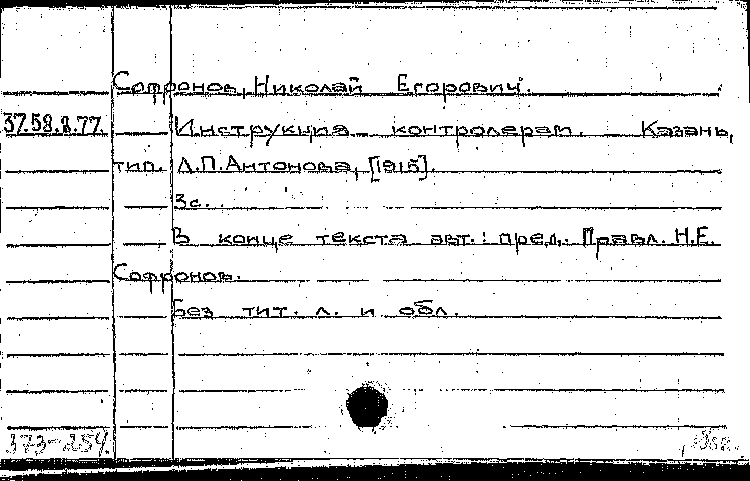 Софронов, Николай Егорович.
37.58.8.77. Инструкция контролерам. Казань,
тип. Л.П.Антонова, [1915].
3с.
В конце текста авт.: пред. Правл. Н.Е.
Софронов.
Без тит. л. и обл.
373-254.